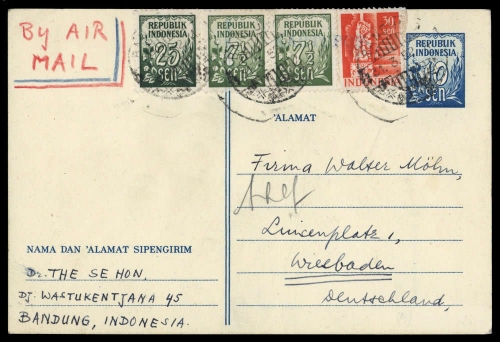 By AIR
MAIL
REPUBLIK
INDONESIA
25
sen
REPUBLIK
INDONESIA
7½
sen
REPUBLIK
INDONESIA
7½
sen
30
sen
REPUBLIK
INDONESIA
10
sen
'ALAMAT
Firma Walter Möhn,
Wiesbaden
Deutschland,
NAMA DAN 'ALAMAT SIPENGIRIM
Dr. THE SE HON,
DJ. WASTUKENTJANA 45
BANDUNG, INDONESIA.